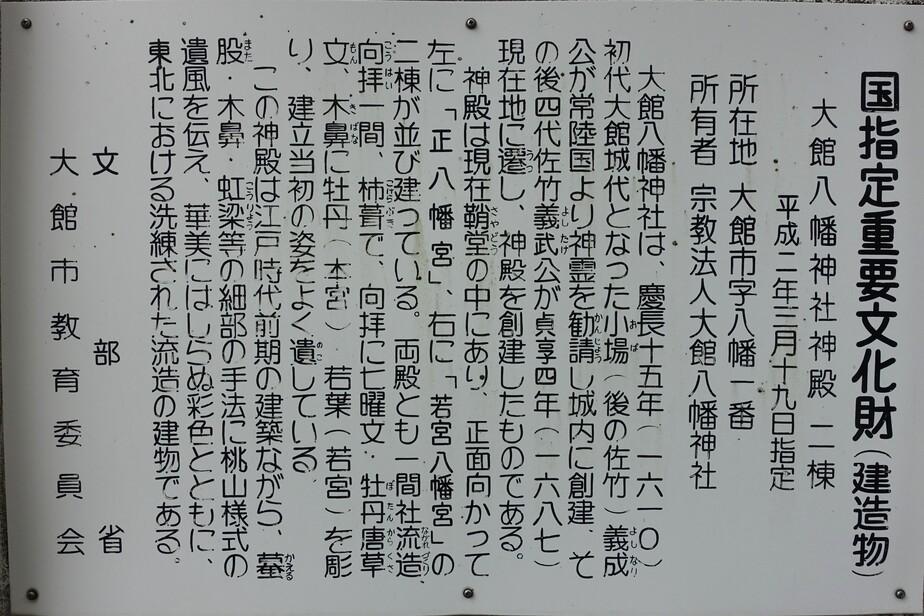 国指定重要文化財（建造物）
大館八幡神社神殿 二棟
平成二年三月十九日指定
所在地 大館市字八幡一番
所有者 宗教法人大館八幡神社
大館八幡神社は、慶長十五年（一六一〇）
初代大館城代となった小場（後の佐竹）義成
公が常陸国より神霊を勧請し城内に創建、そ
の後四代佐竹義武公が貞享四年（一六八七）
現在地に遷し、神殿を創建したものである。
神殿は現在鞘堂の中にあり、正面向かって
左に「正八幡宮」、右に「若宮八幡宮」の
二棟が並び建っている。両殿とも一間社流造、
向拝一間、杮葺で、向拝に七曜文・牡丹唐草
文、木鼻に牡丹（本宮）若葉（若宮）を彫
り、建立当初の姿をよく遺している。
この神殿は江戸時代前期の建築ながら、蟇
股・木鼻・虹梁等の細部の手法に桃山様式の
遺風を伝え、華美にはしらぬ彩色とともに、
東北における洗練された流造の建物である。
文部省
大館市教育委員会